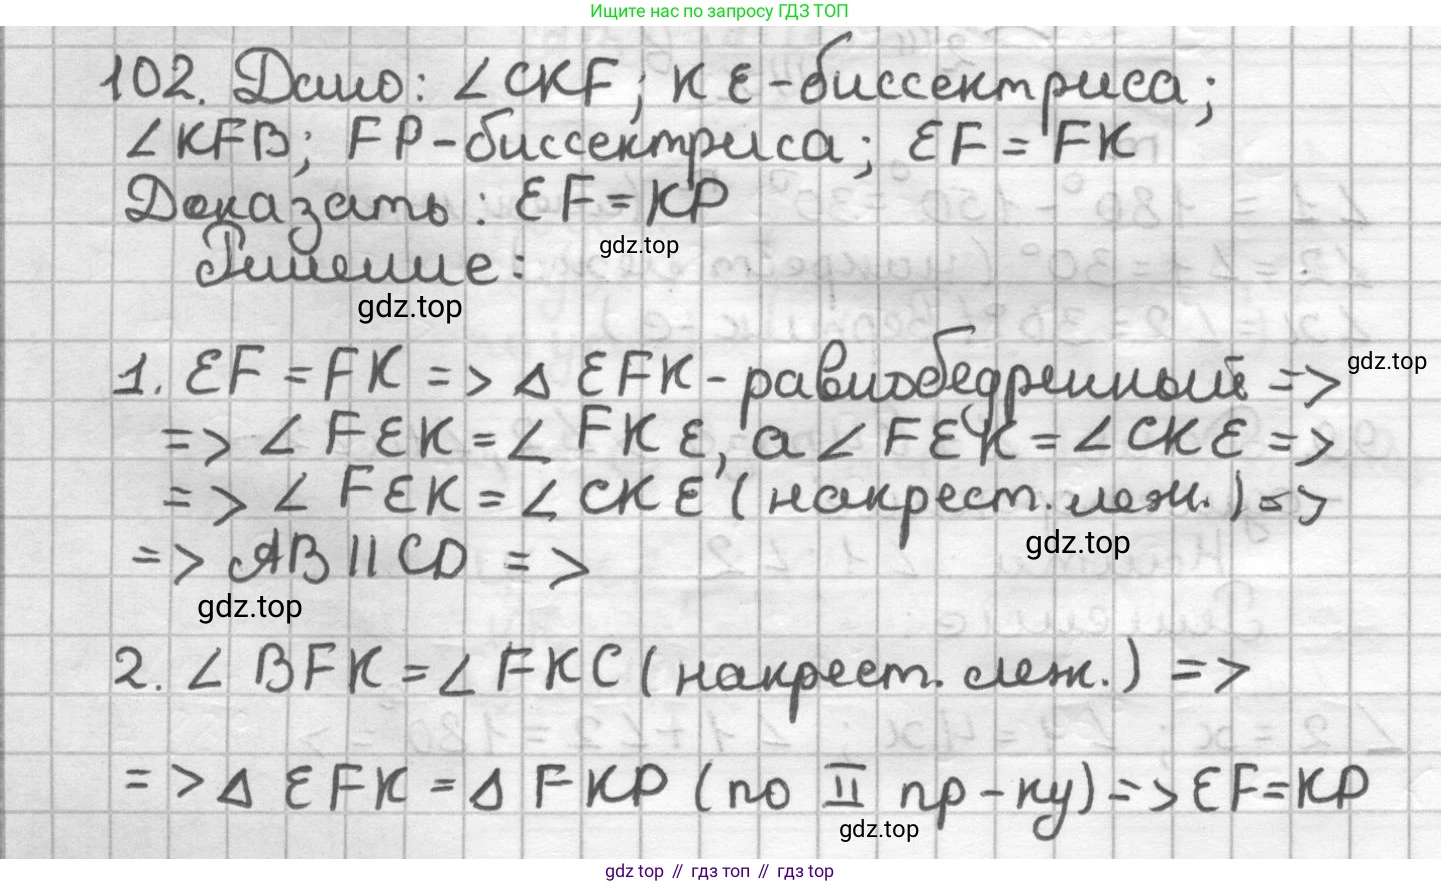 Ищите нас по запросу ГДЗ ТОП
102. Дано: ∠CKF; KE-биссектриса;
∠KFB; FP-биссектриса; EF = FK
Доказать: EF = KP
gdz.top
Решение:
gdz.top
1. EF = FK => △ EFK - равнобедренный =>
gdz.top
=> ∠ FEK = ∠ FKE, а ∠ FEK = ∠ CKE =>
=> ∠ FEK = ∠ CKE (накрест. леж.) =>
gdz.top
=> AB || CD =>
gdz.top
2. ∠ BFK = ∠ FKC (накрест. леж.) =>
=> △ EFK = △ FKP (по II пр-ку) => EF = KP
gdz.top
gdz top // гдз топ // гдз top